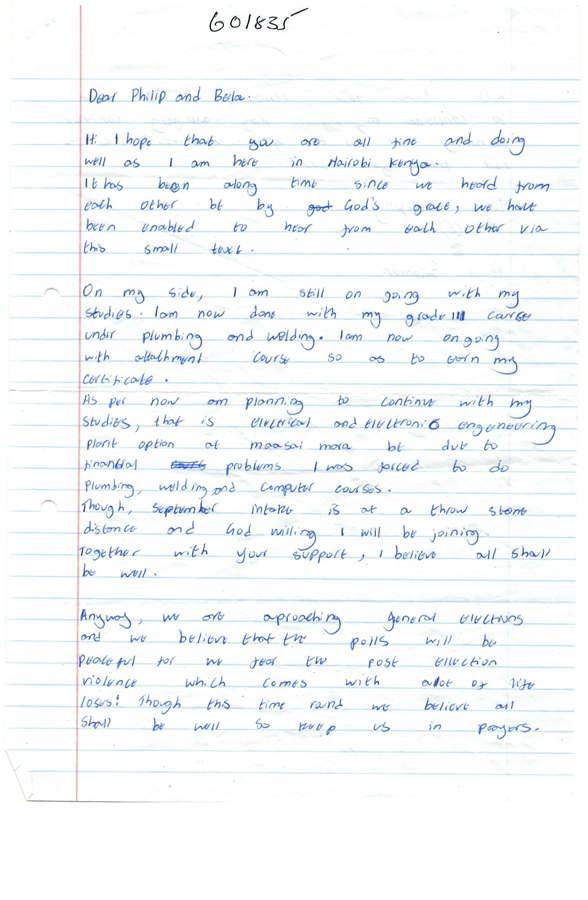 601835
Dear Philip and Bela.
Hi I hope that you are all fine and doing
well as I am here in Nairobi Kenya.
It has been along time since we heard from
each other bt by god God's grace, we have
been enabled to hear from each other via
this small text.
On my side, I am still on going with my
studies. Iam now done with my grade III course
under plumbing and welding. Iam now ongoing
with attatchment course so as to earn my
certificate.
As per now am planning to continue with my
studies, that is electrical and electronic engeneering
plant option at maasai mara bt due to
financial problems I was forced to do
plumbing, welding and computer courses.
Though, September intake is at a throw stone
distance and God willing I will be joining.
Together with your support, I believe all shall
be well.
Anyway, we are aproaching general elections
and we believe that the polls will be
peaceful for we fear the post ellection
violence which comes with alot of life
loses! Though this time rand we believe all
shall be well so keep us in prayers.